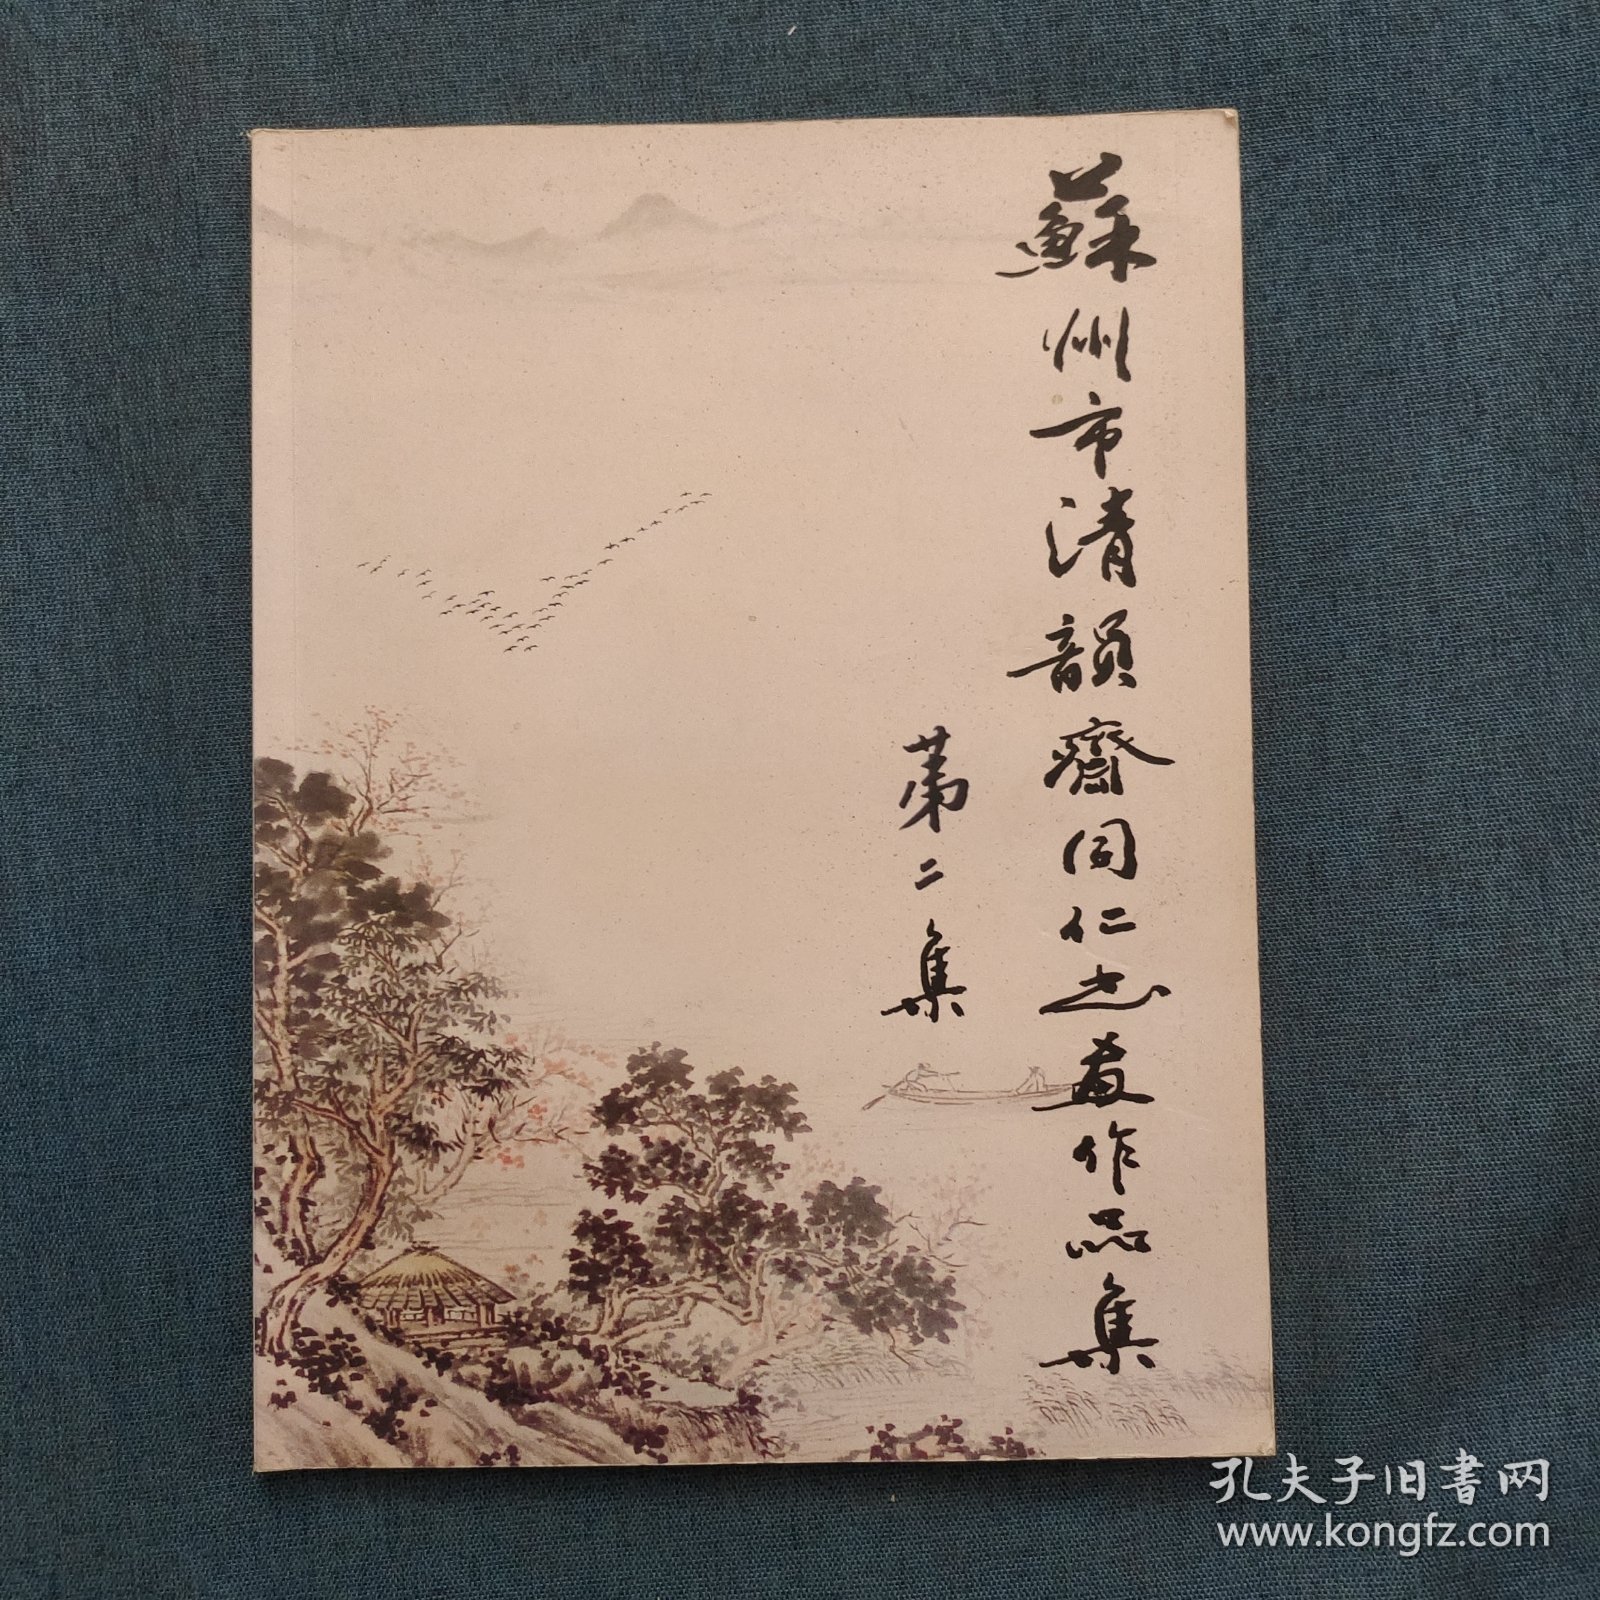 蘇州市清韻齋同仁书畫作品集
第二集
孔夫子旧書网
www.kongfz.com